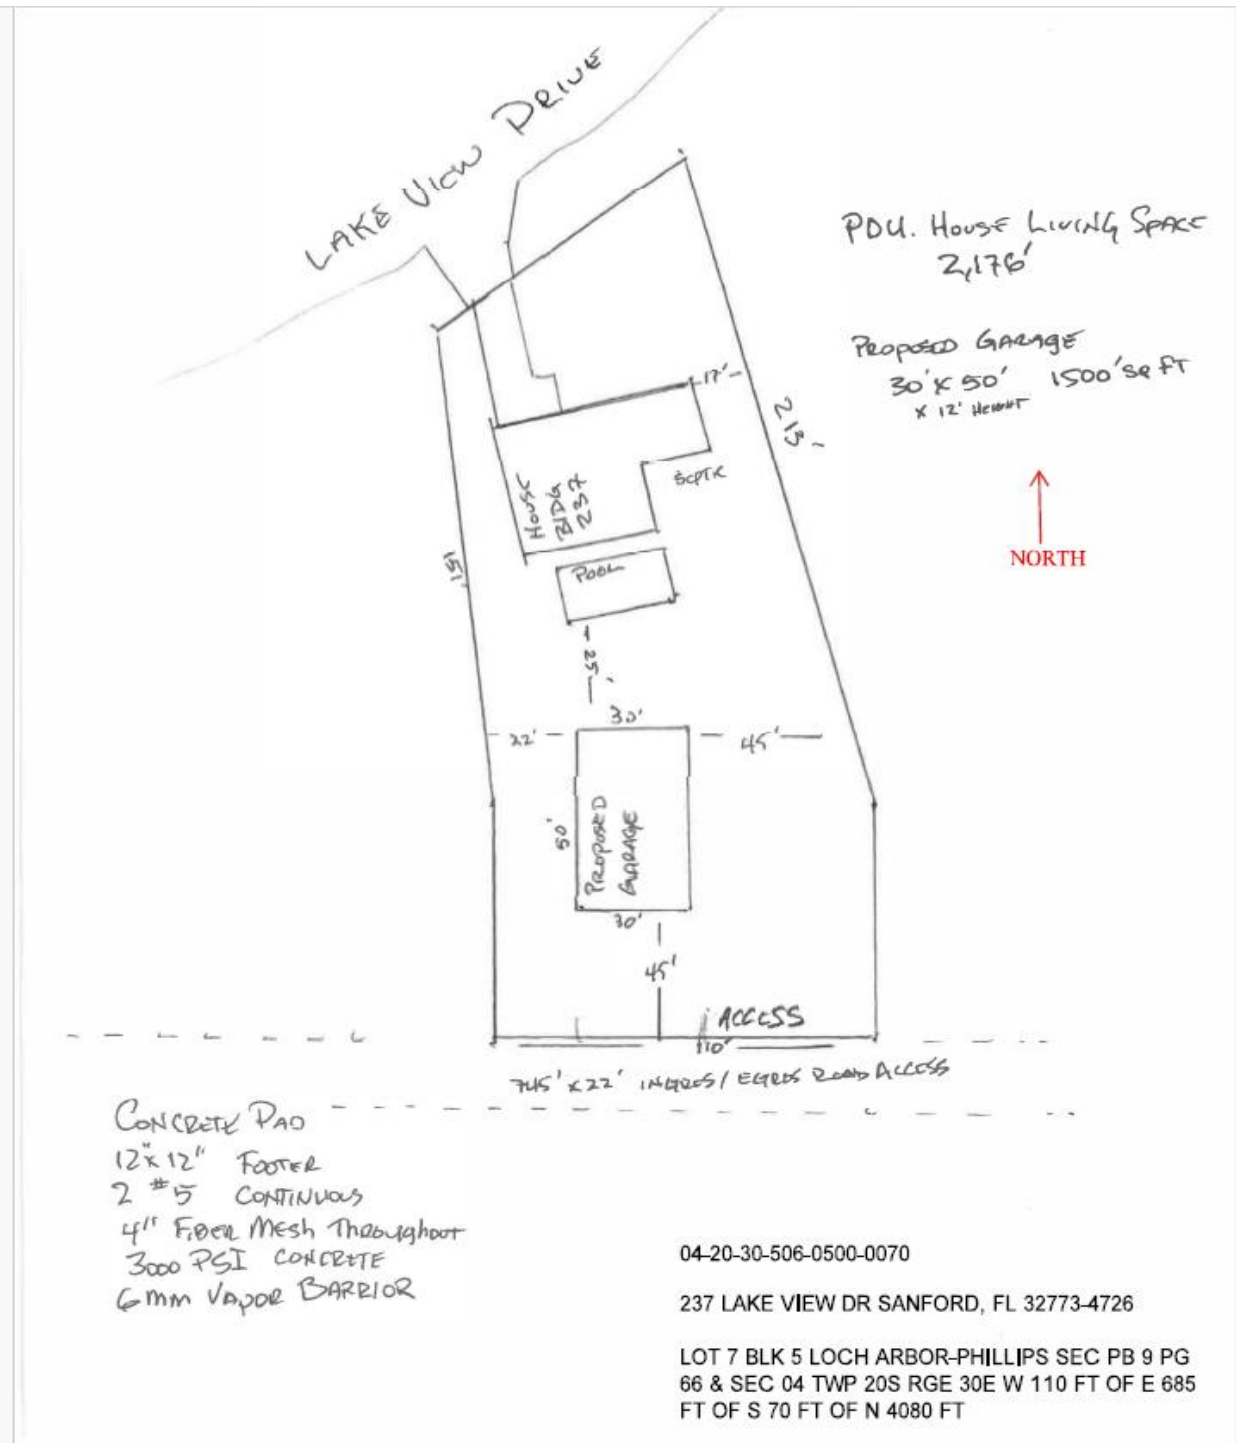 LAKE VIEW DRIVE
PDU. HOUSE LIVING SPACE
2,176'
PROPOSED GARAGE
30' X 50' 1500' SQ FT
X 12' HEIGHT
17'
213'
NORTH
SEPTIC
HOUSE
BLDG
237
151'
POOL
25'
30'
22'
45'
50'
PROPOSED
GARAGE
30'
45'
ACCESS
110'
745' X 22' INGRES / EGRES ROAD ACCESS
CONCRETE PAD
12" X 12" FOOTER
2 #5 CONTINUOUS
4" FIBER MESH THROUGHOUT
3000 PSI CONCRETE
6mm VAPOR BARRIOR
04-20-30-506-0500-0070
237 LAKE VIEW DR SANFORD, FL 32773-4726
LOT 7 BLK 5 LOCH ARBOR-PHILLIPS SEC PB 9 PG
66 & SEC 04 TWP 20S RGE 30E W 110 FT OF E 685
FT OF S 70 FT OF N 4080 FT